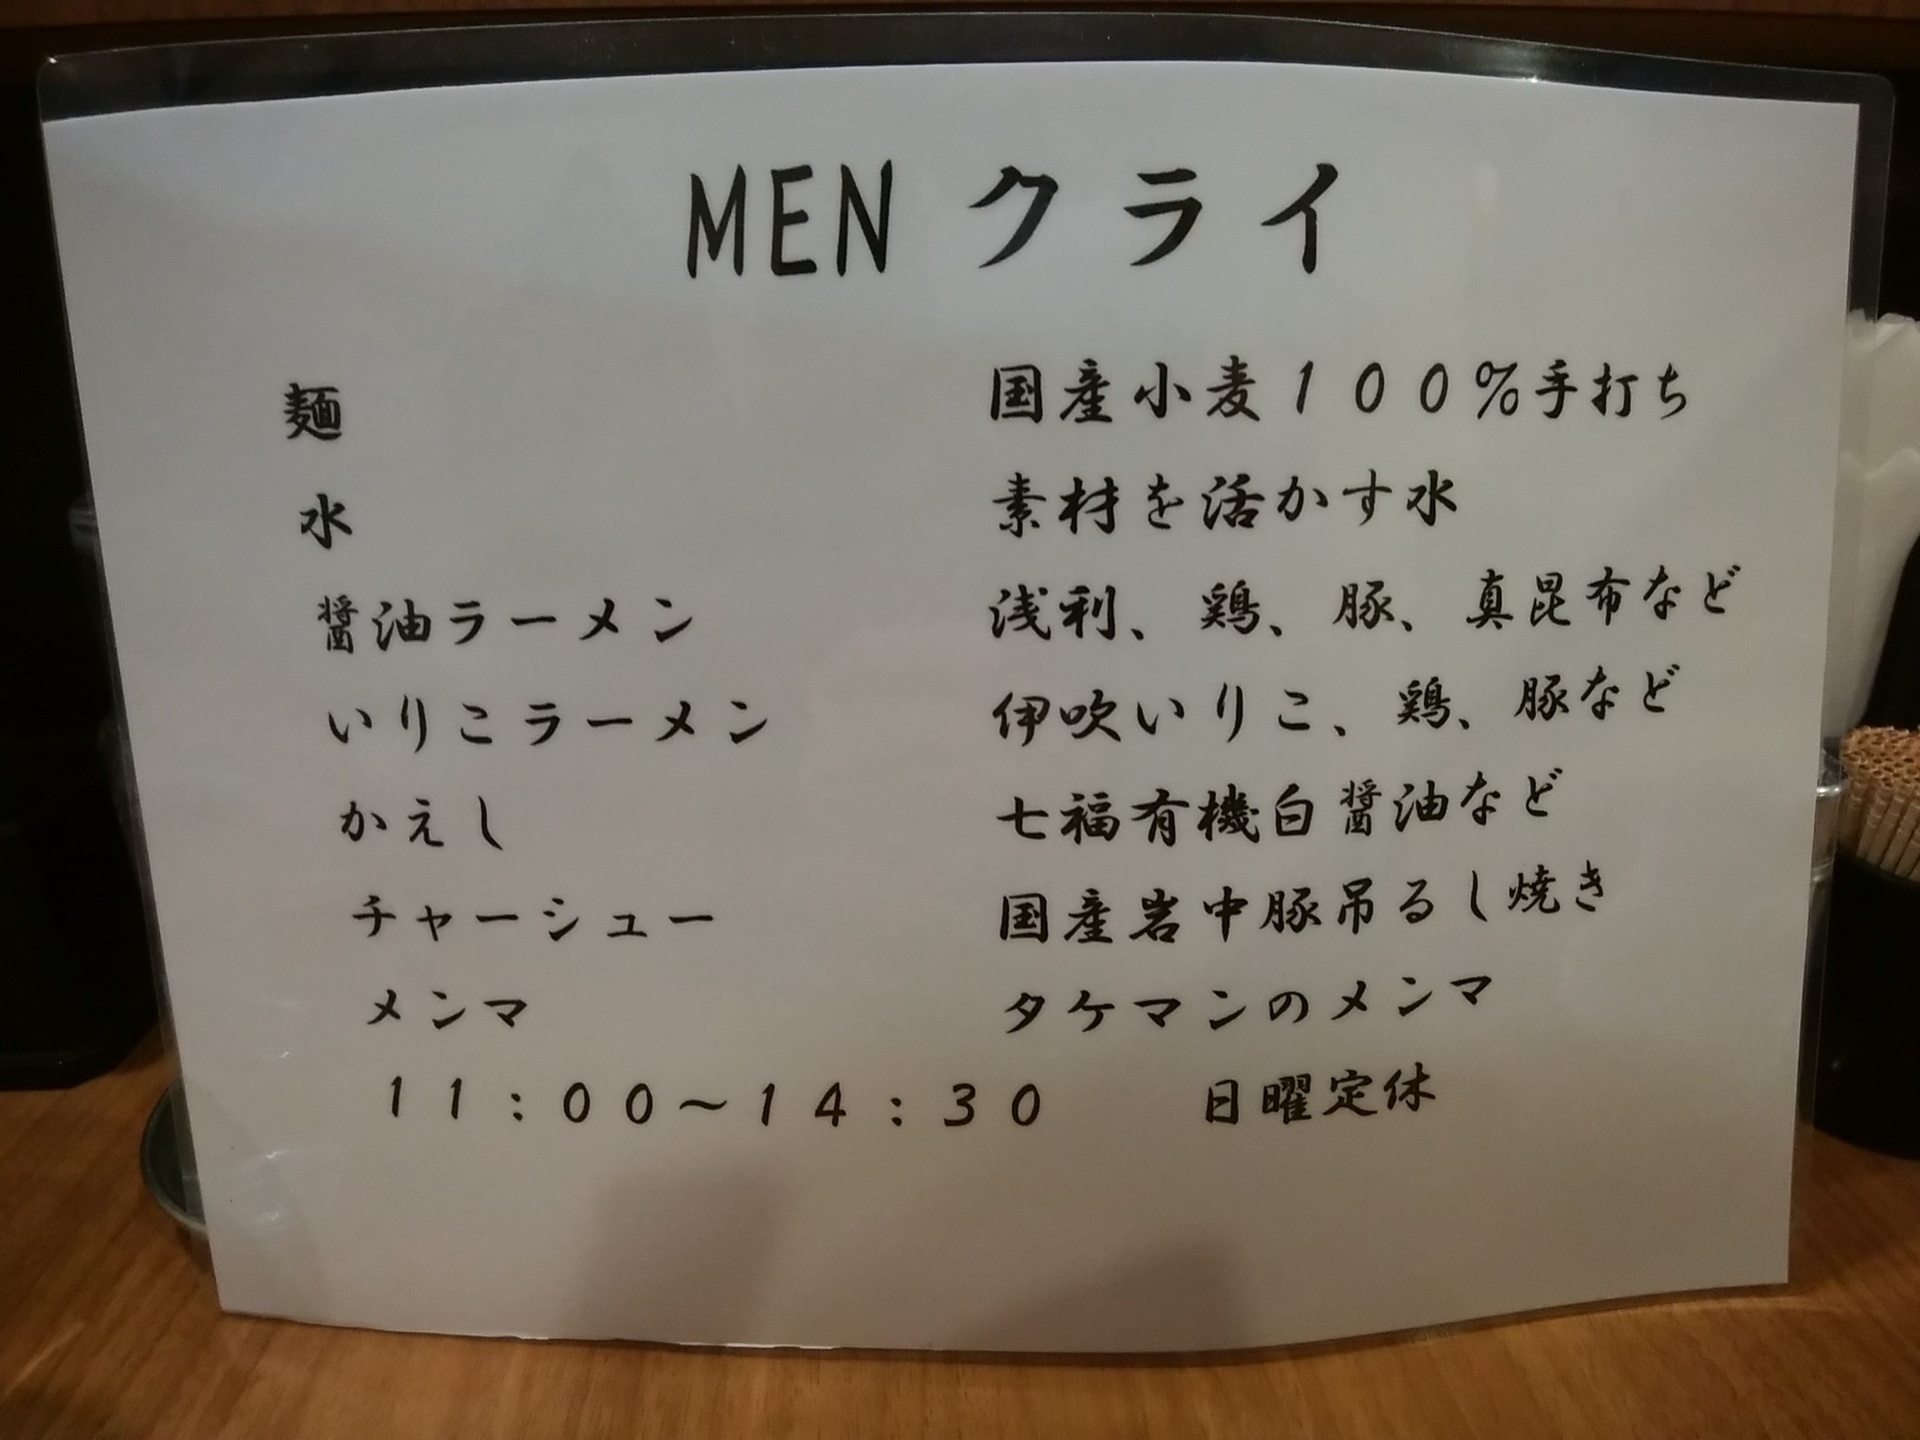 MEN クライ
麺 国産小麦１００％手打ち
水 素材を活かす水
醤油ラーメン 浅利、鶏、豚、真昆布など
いりこラーメン 伊吹いりこ、鶏、豚など
かえし 七福有機白醤油など
チャーシュー 国産岩中豚吊るし焼き
メンマ タケマンのメンマ
１１：００～１４：３０ 日曜定休